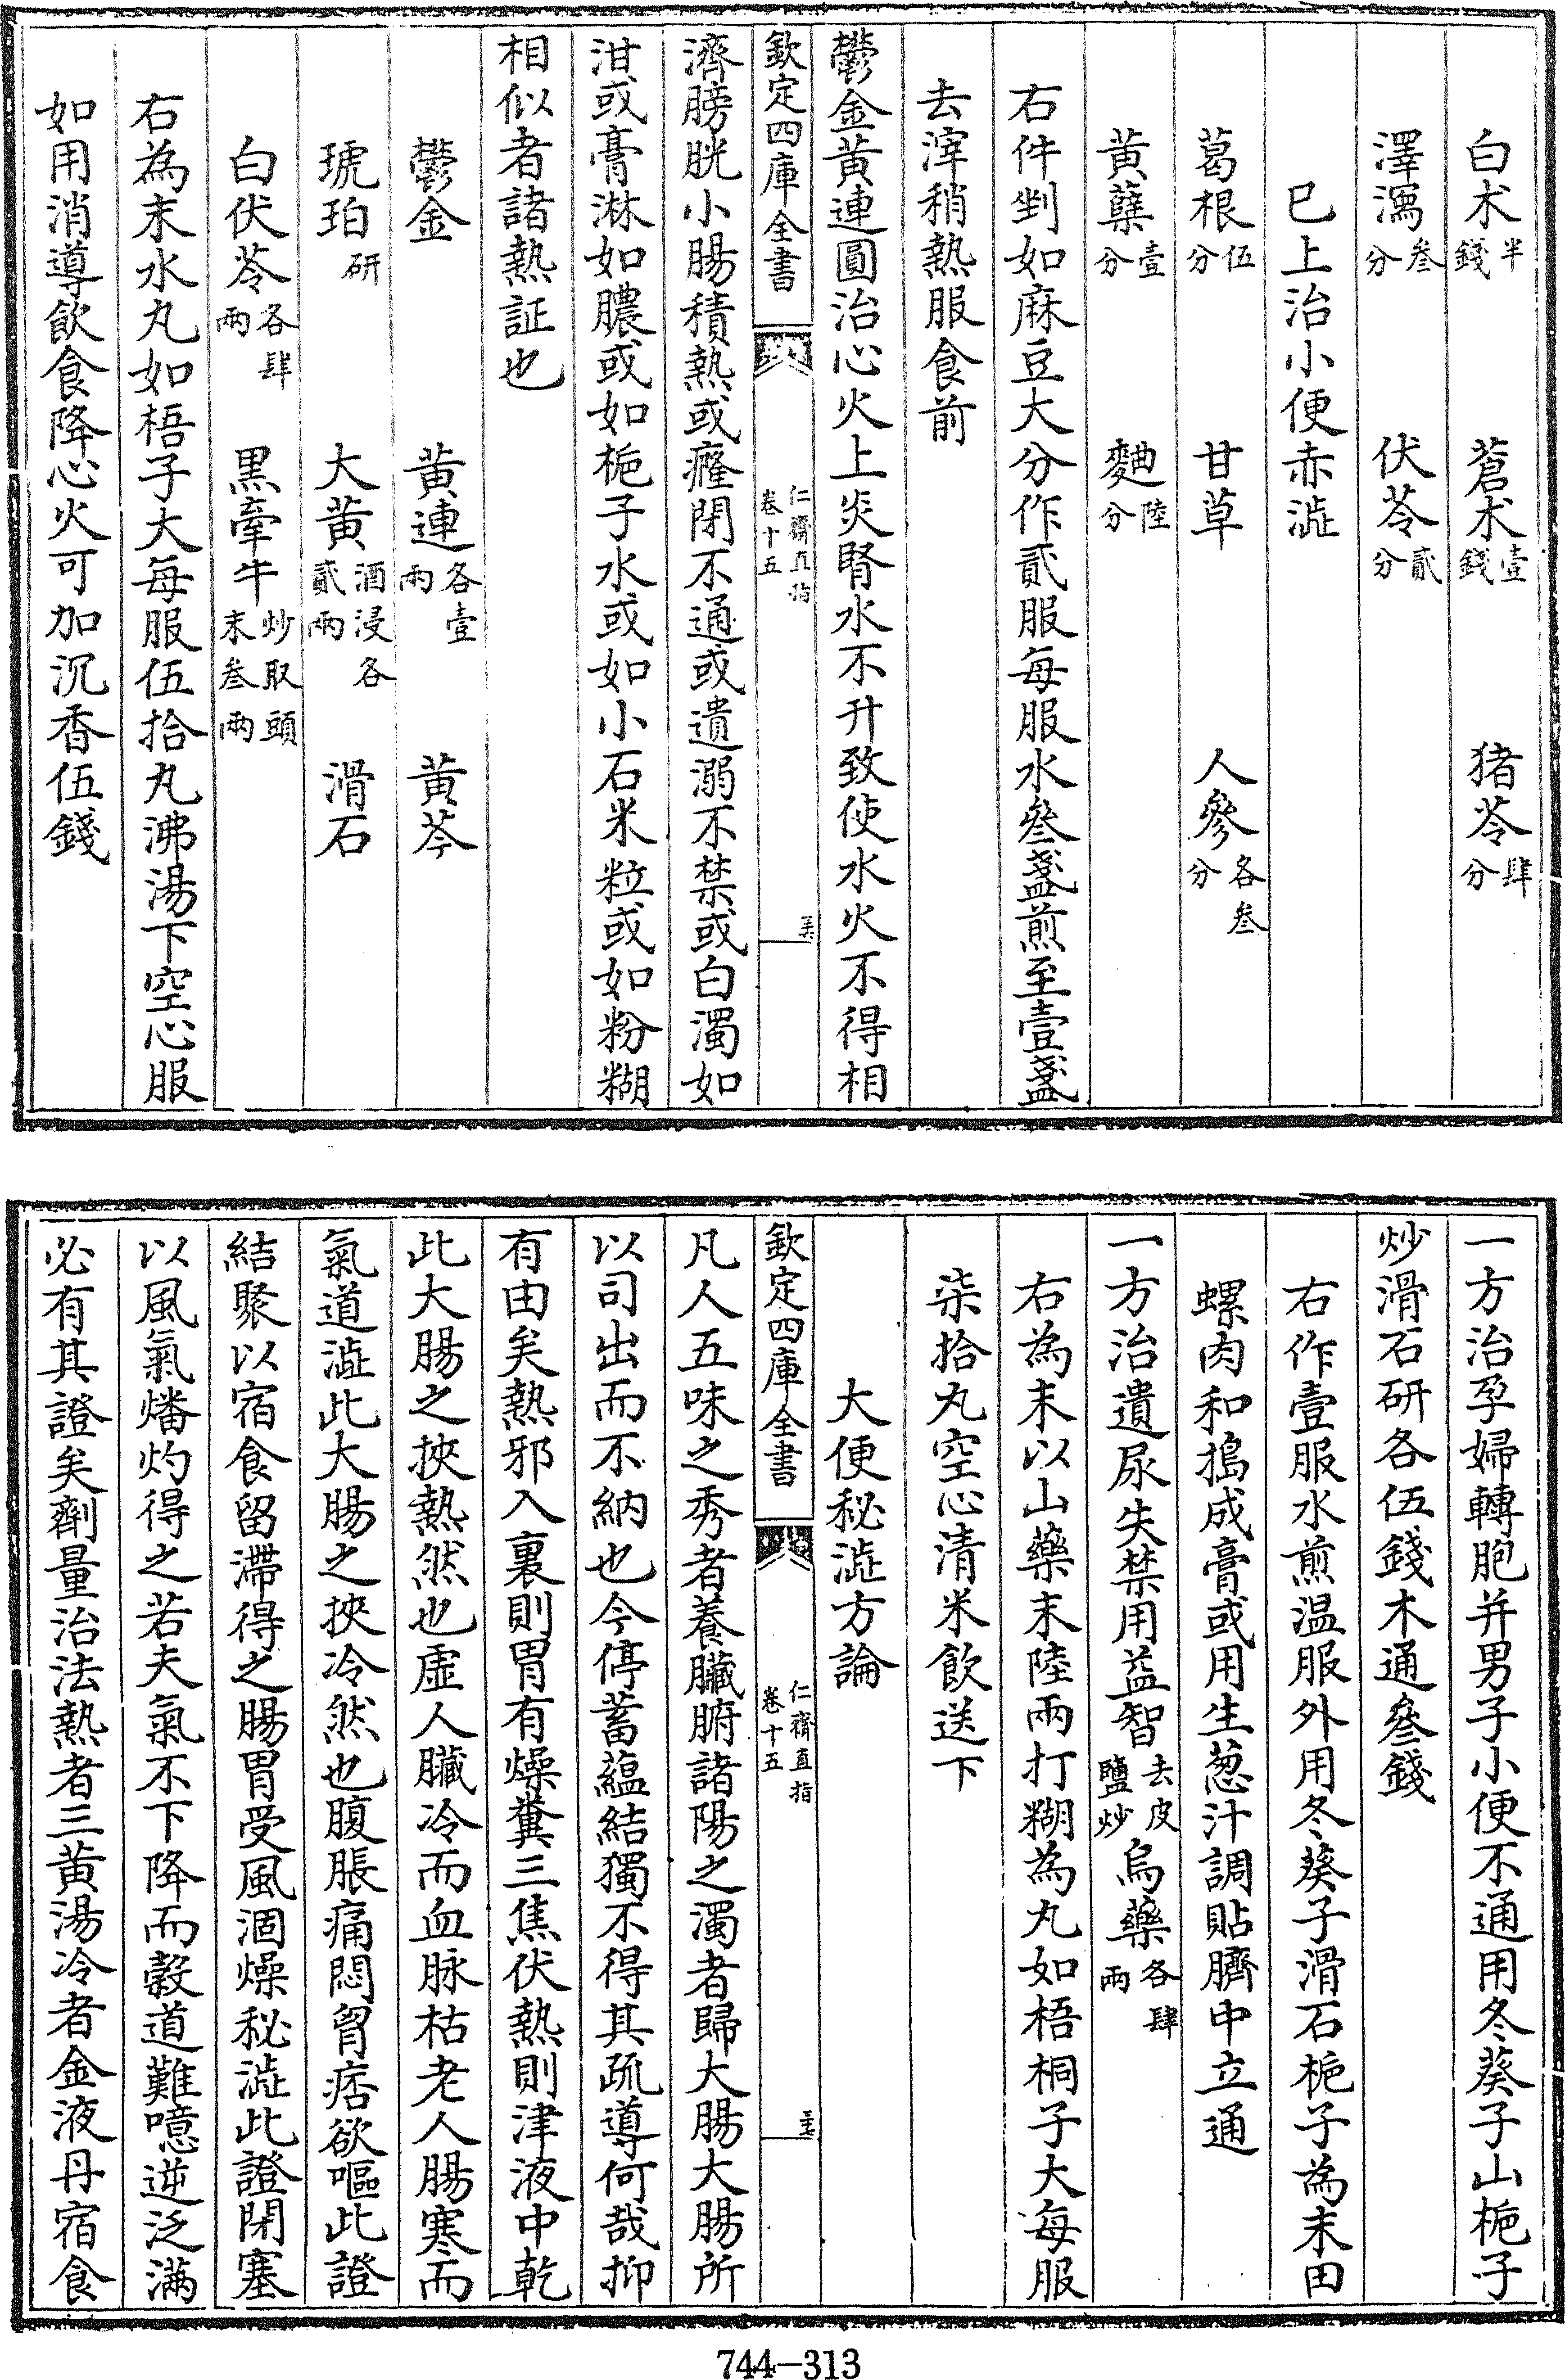 白术半錢　蒼术壹錢　猪苓肆分
澤瀉叁分　伏苓貳分
已上治小便赤澁
葛根伍分　甘草　人參各叁分
黄蘗壹分　麯陸分
右件剉如麻豆大分作貳服每服水叁盞煎至壹盞
去滓稍熱服食前
鬱金黄連圓治心火上炎腎水不升致使水火不得相
欽定四庫全書　仁齋直指卷十五
濟膀胱小腸積熱或癃閉不通或遺溺不禁或白濁如
泔或膏淋如膿或如梔子水或如小石米粒或如粉糊
相似者諸熱証也
鬱金　黄連各壹兩　黄芩
琥珀研　大黄酒浸各貳兩　滑石
白伏苓各肆兩　黒牽牛炒取頭末叁兩
右為末水丸如梧子大每服伍拾丸沸湯下空心服
如用消導飲食降心火可加沉香伍錢
一方治孕婦轉胞并男子小便不通用冬葵子山梔子
炒滑石研各伍錢木通叁錢
右作壹服水煎温服外用冬葵子滑石梔子為末田
螺肉和搗成膏或用生葱汁調貼臍中立通
一方治遺尿失禁用益智去皮鹽炒烏藥各肆兩
右為末以山藥末陸兩打糊為丸如梧桐子大每服
柒拾丸空心清米飲送下
大便秘澁方論
欽定四庫全書　仁齋直指卷十五
凡人五味之秀者養臟腑諸陽之濁者歸大腸大腸所
以司出而不納也今停蓄藴結獨不得其疏導何哉抑
有由矣熱邪入裏則胃有燥糞三焦伏熱則津液中乾
此大腸之挾熱然也虛人臟冷而血脉枯老人腸寒而
氣道澁此大腸之挾冷然也腹脹痛悶胷痞欲嘔此證
結聚以宿食留滯得之腸胃受風涸燥秘澁此證閉塞
以風氣燔灼得之若夫氣不下降而穀道難噫逆泛滿
必有其證矣劑量治法熱者三黄湯冷者金液丹宿食
744-313